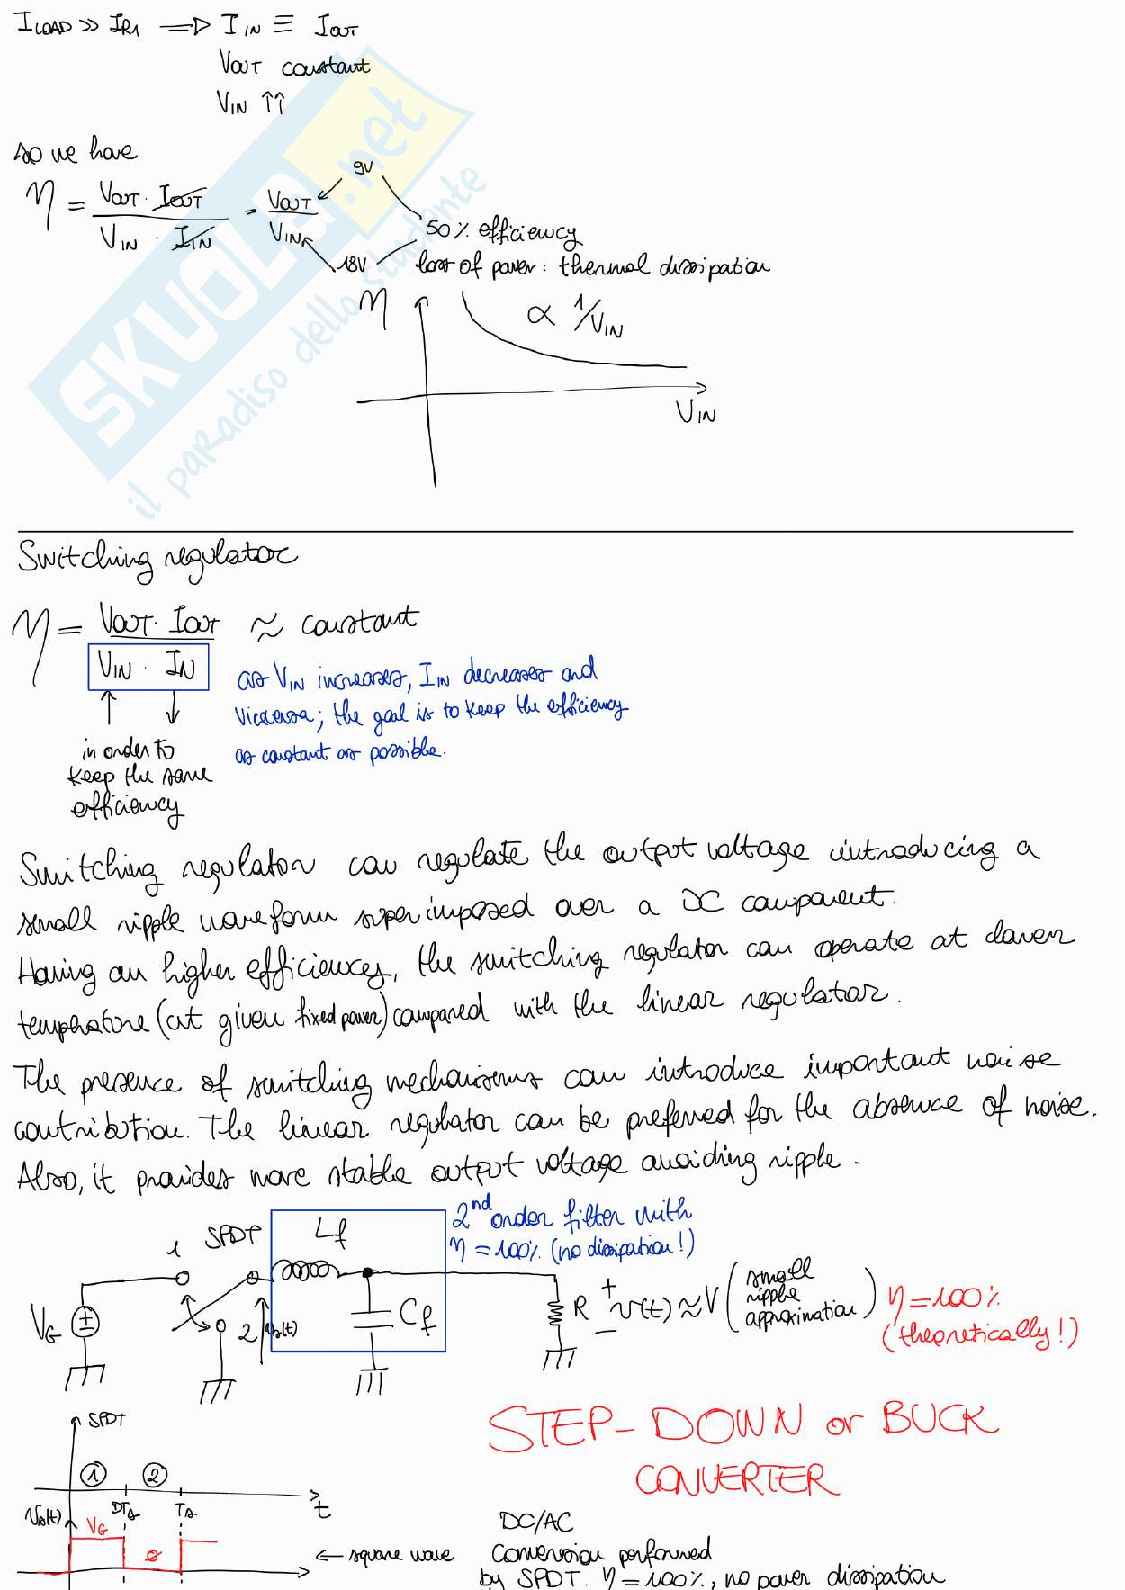 I LOAD >> I R1 ⟹ I IN ≡ I OUT
VOUT constant
VIN ↑↑
so we have
η = VOUT · IOUT / VIN · IIN = VOUT / VIN
9V
18V
50% efficiency
loss of power: thermal dissipation
η
∝ 1/VIN
VIN
SKUOLA.net
il paradiso dello studente
Switching regulator
η = VOUT · IOUT / VIN · IN ≈ constant
as VIN increases, IIN decreases and
viceversa; the goal is to keep the efficiency
as constant as possible.
in order to
keep the same
efficiency
Switching regulator can regulate the output voltage introducing a
small ripple waveform superimposed over a DC component.
Having an higher efficiency, the switching regulator can operate at lower
temperature (at given fixed power) compared with the linear regulator.
The presence of switching mechanisms can introduce important noise
contribution. The linear regulator can be preferred for the absence of noise.
Also, it provides more stable output voltage avoiding ripple.
2nd order filter with
η = 100% (no dissipation!)
1
SPDT
Lf
VG
2
vs(t)
Cf
R
+
−
v(t) ≈ V (small ripple approximation)
η = 100%
(theoretically!)
STEP-DOWN or BUCK
CONVERTER
SPDT
1
2
DTs
Ts
t
vs(t)
VG
0
← square wave
DC/AC
Conversion performed
by SPDT. η = 100%, no power dissipation